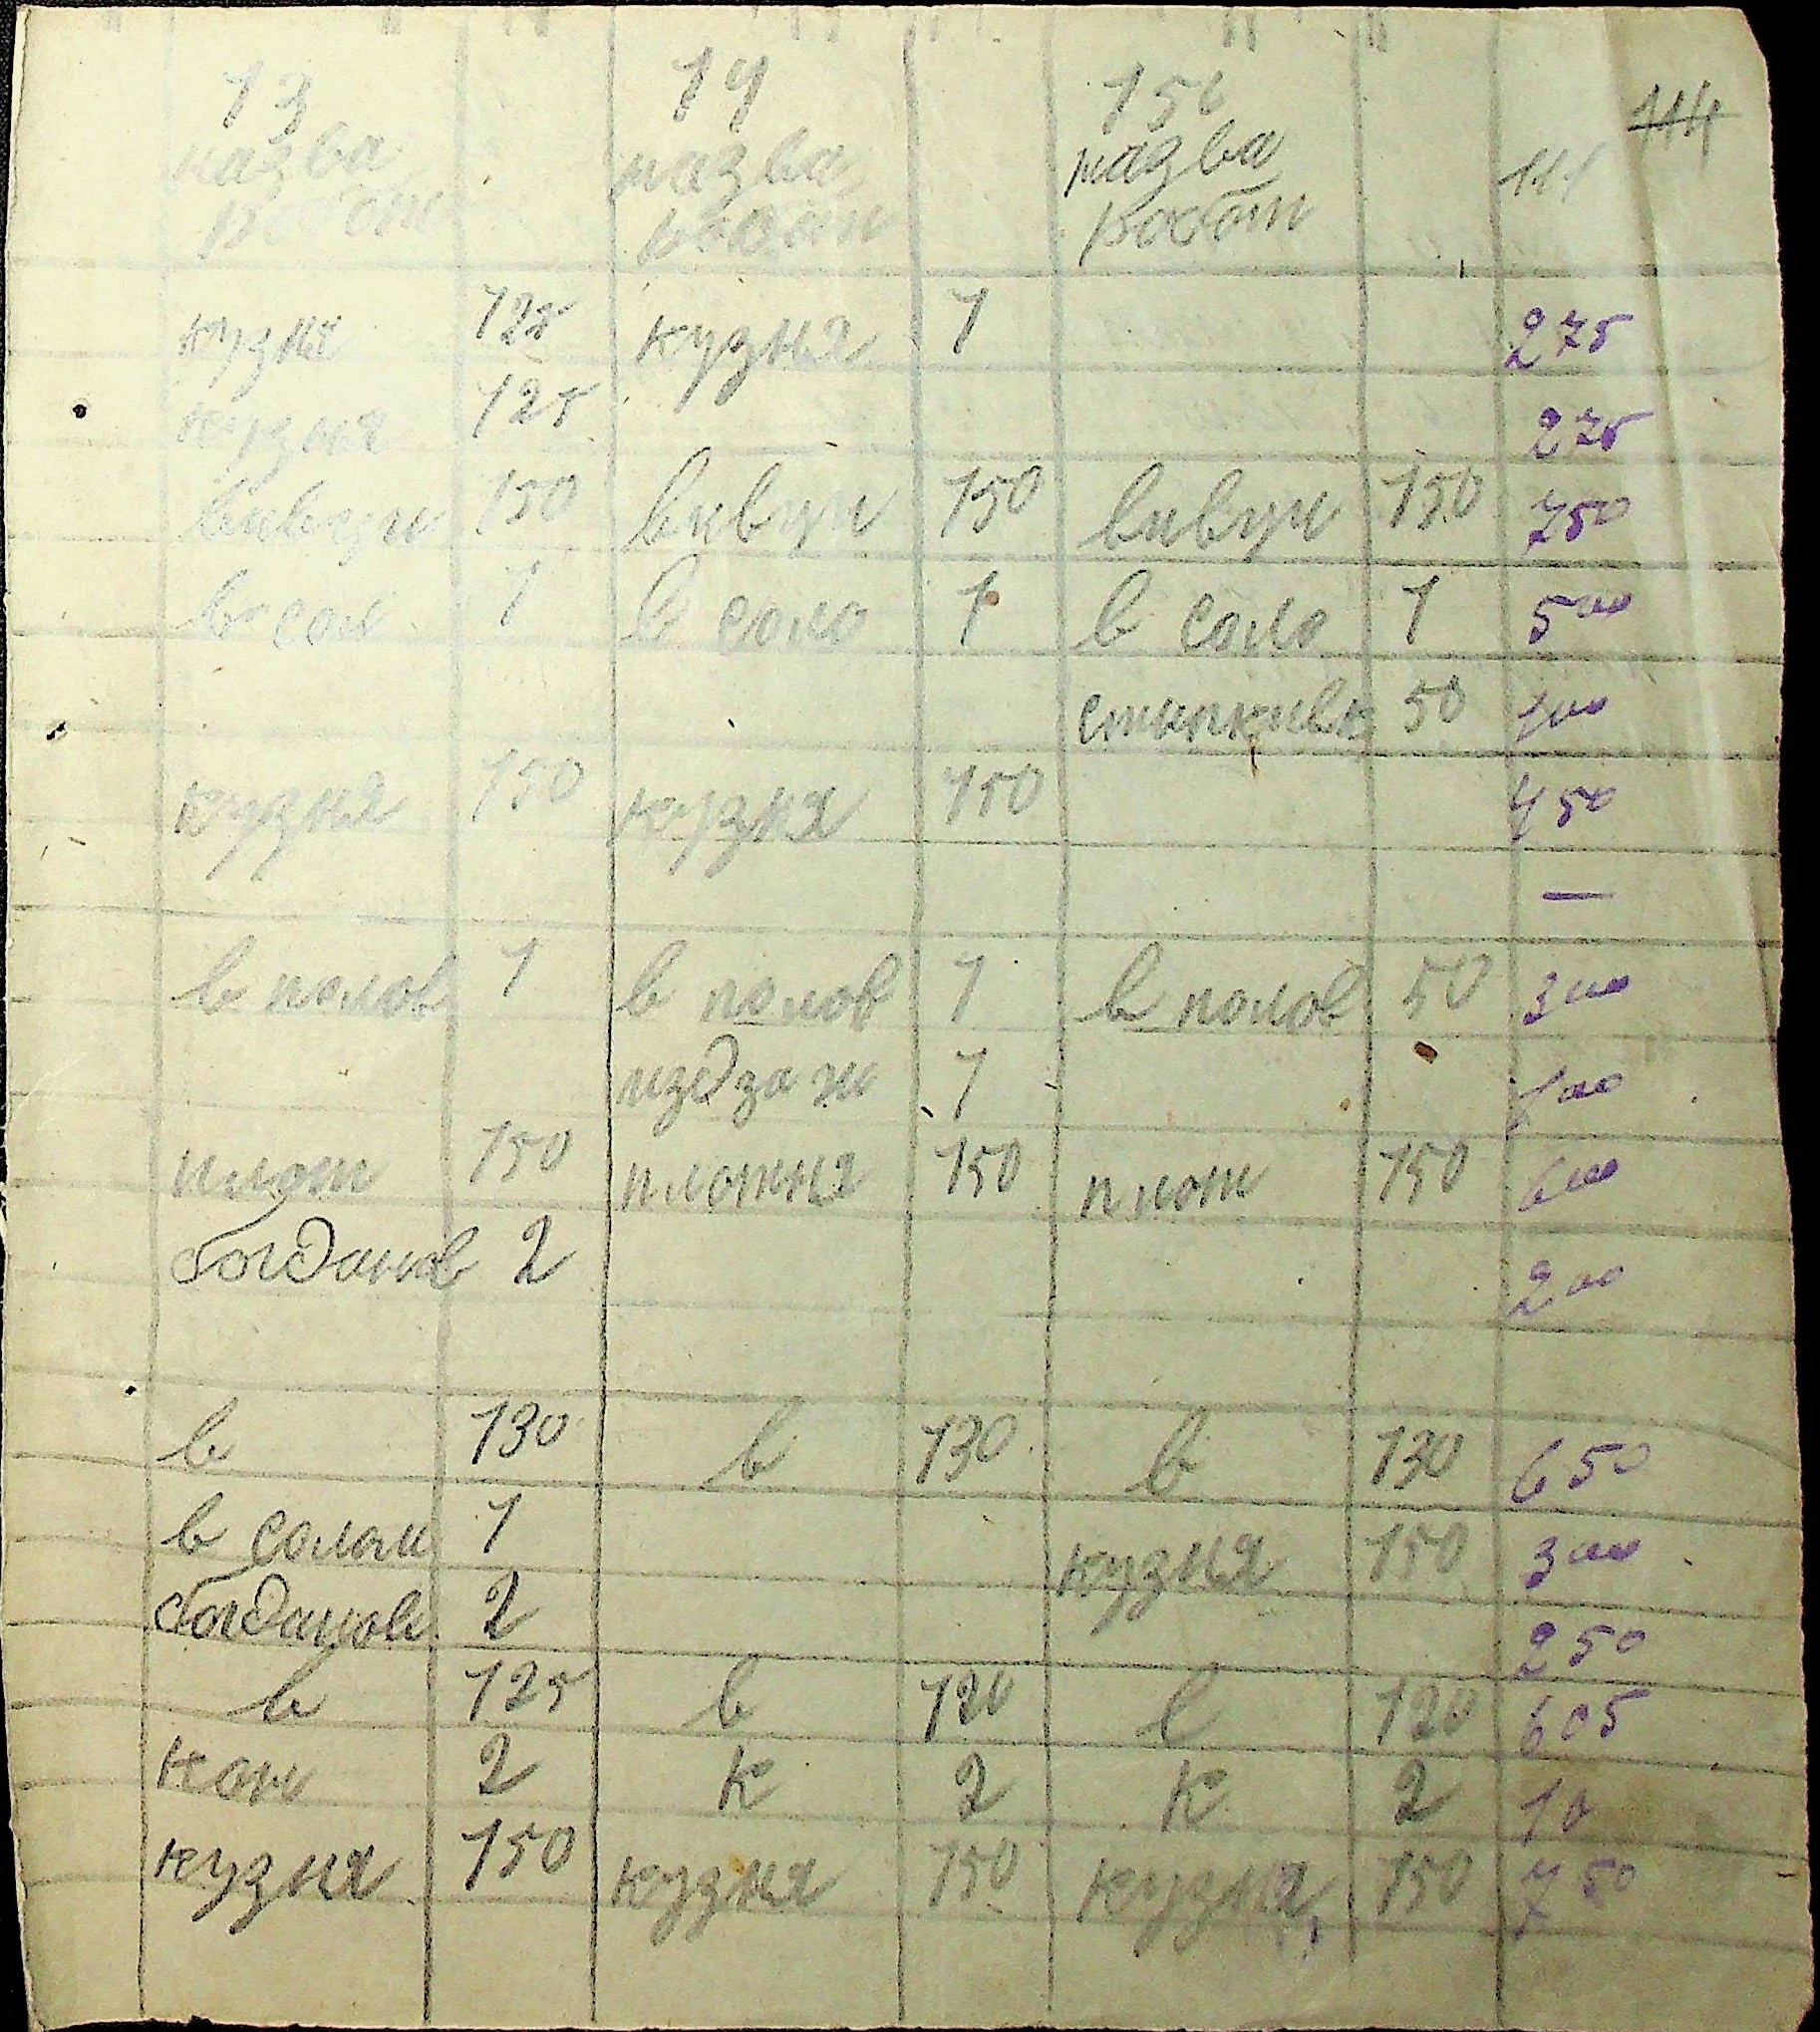 13 14 15
назва назва назва 111 114
робот робот робот
кузня 125 кузня 1 275
кузня 125 275
вивузи 150 вивузи 150 вивузи 150 750
в сол 1 в соло 1 в соло 1 500
50 100
кузня 150 кузня 150 450
—
в полов 1 в полов 1 в полов 50 300
1 100
плот 150 плотня 150 плот 150 600
богданов 2 200
в 130 в 130 в 130 650
в солом 1 кузня 150 300
богданов 2 250
в 125 в 120 в 120 605
кон 2 к 2 к 2 10
кузня 150 кузня 150 кузня 150 750